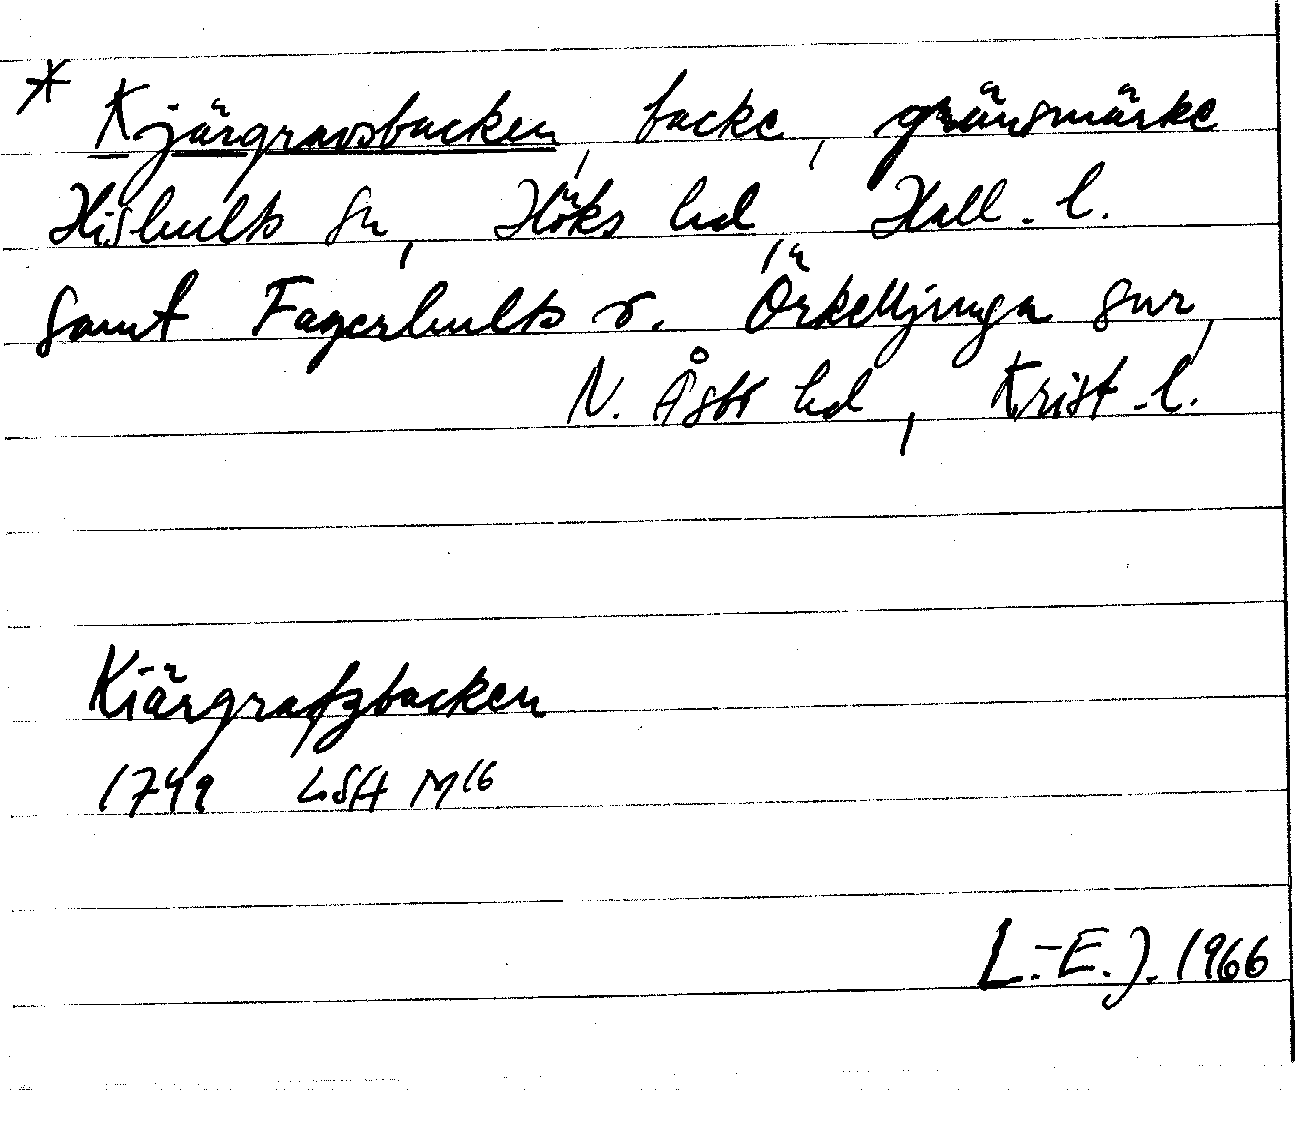 * Kjärgravsbacken, backe, gränsmärke
Hishults sn, Höks hd, Hall. l.
samt Fagerhults o. Örkelljunga snr,
N. Åsbo hd, Krist. l.
Kiärgrafzbacken
1749 LSA M16
L.-E. J. 1966